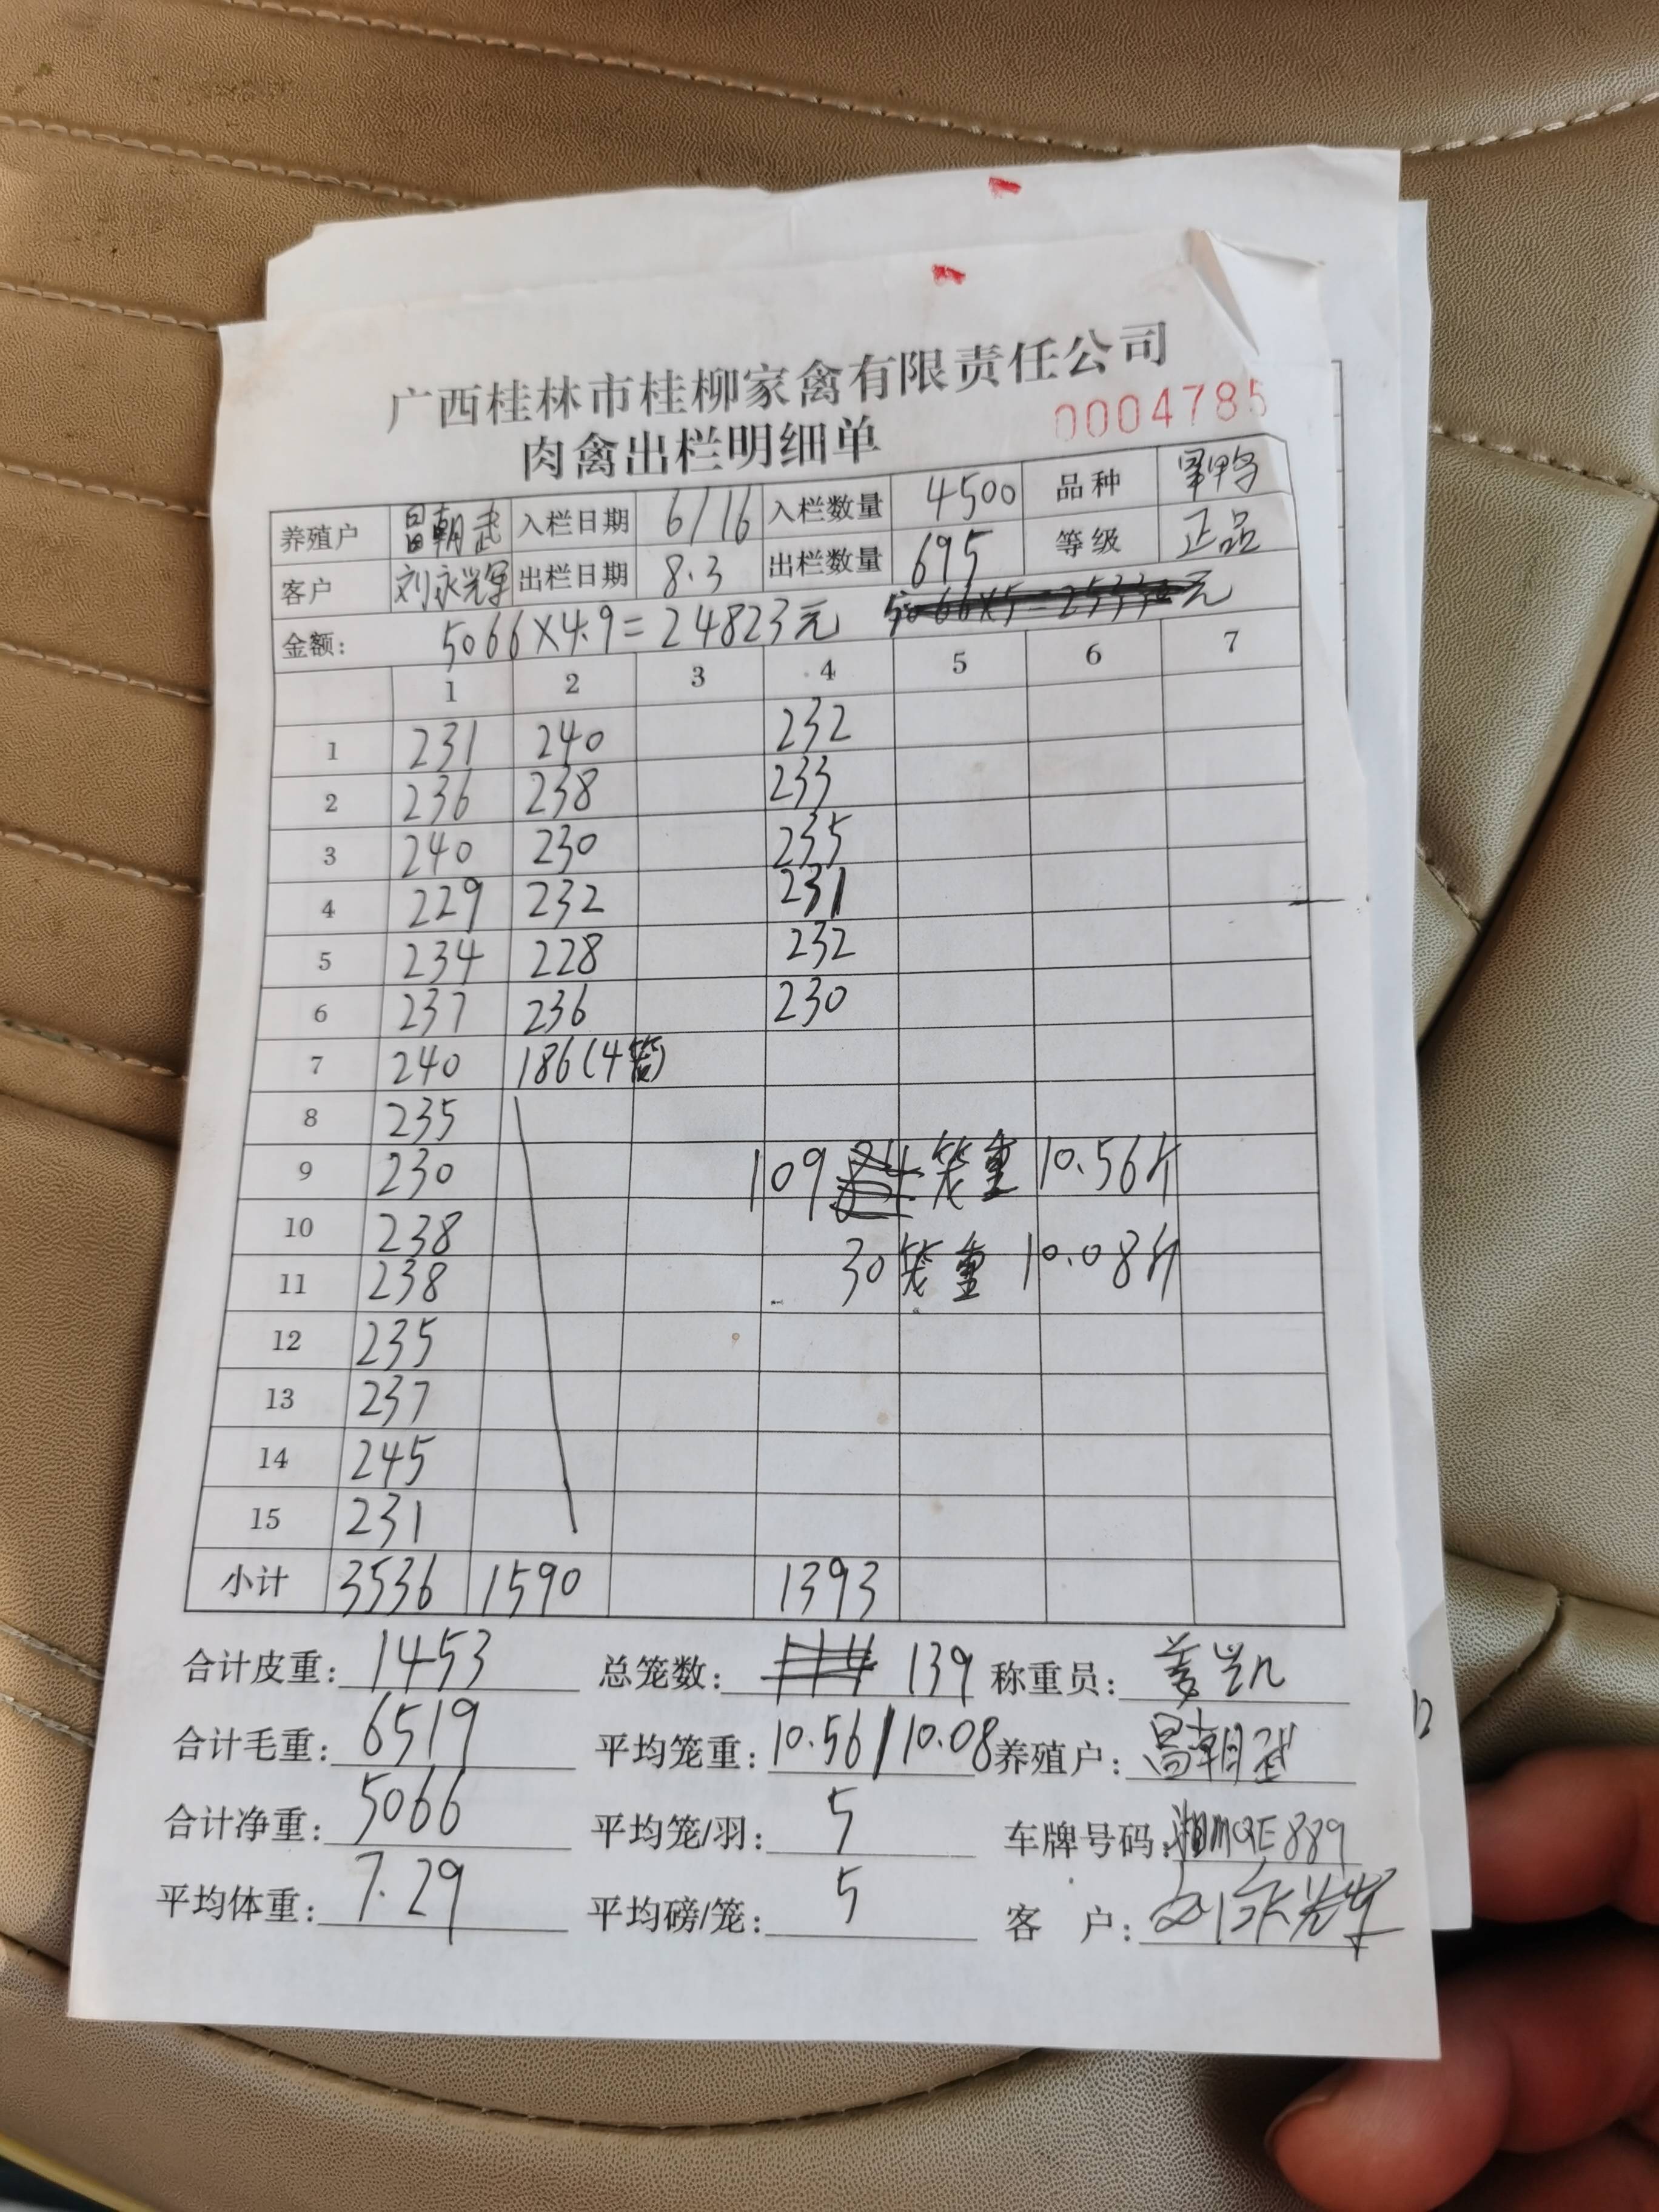 广西桂林市桂柳家禽有限责任公司
肉禽出栏明细单 0004785
养殖户 昌朝武 入栏日期 6/16 入栏数量 4500 品种
客户 刘永辉 出栏日期 8.3 出栏数量 695 等级 正品
金额: 5066×4.9=24823元 5066×5=25330元
1 2 3 4 5 6 7
1 231 240 232
2 236 238 233
3 240 230 235
4 229 232 231
5 234 228 232
6 237 236 230
7 240 186(4笼)
8 235
9 230 109 笼重 10.56斤
10 238
11 238 30笼重 10.08斤
12 235
13 237
14 245
15 231
小计 3536 1590 1393
合计皮重: 1453 总笼数: 139 称重员: 姜凯
合计毛重: 6519 平均笼重: 10.56/10.08 养殖户: 昌朝武
合计净重: 5066 平均笼/羽: 5 车牌号码: 湘MQE889
平均体重: 7.29 平均磅/笼: 5 客户: 刘永辉